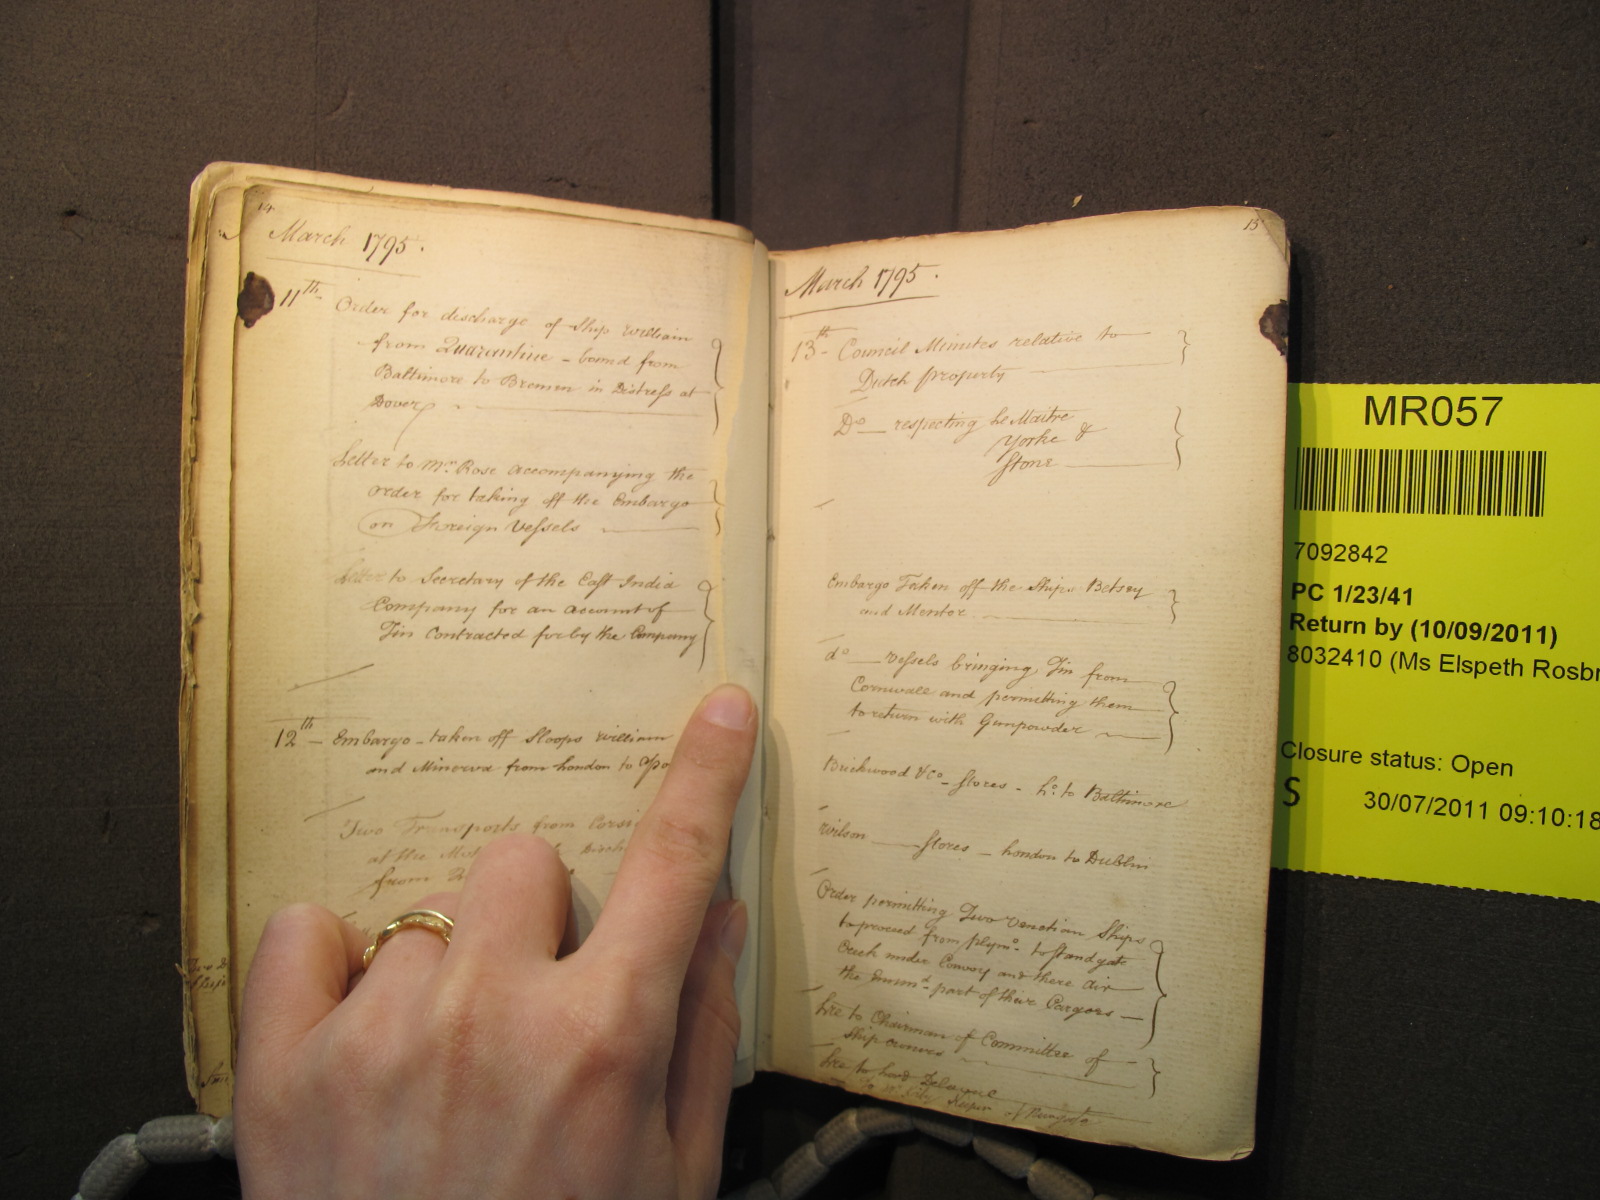 14
March 1795.
11th- Order for discharge of Ship William
from Quarantine - bound from
Baltimore to Bremen in Distress at
Dover
Letter to Mr. Rose accompanying the
order for taking off the Embargo
on Foreign Vessels
Letter to Secretary of the East India
Company for an account of
Tin Contracted for by the Company
12th - Embargo - taken off Sloops William
and Minerva from London to
Two Transports from Corsi
at the
from
15
March 1795.
13th- Council Minutes relative to
Dutch property
Do respecting Le Maitre
Yorke &
Stone
Embargo Taken off the Ships Betsey
and Mentor
do Vessels bringing Tin from
Cornwall and permitting them
to return with Gunpowder
Brickwood & Co - Stores - Lo. to Baltimore
Wilson Stores - London to Dublin
Order permitting Two Venetian Ships
to proceed from Plymo. to Standgate
Creek under Convoy and there air
the part of their Cargoes
Lre to Chairman of Committee of
Ship owners
Lre to Lord
To Mr. Keeper of Newgate
MR057
7092842
PC 1/23/41
Return by (10/09/2011)
8032410 (Ms Elspeth Rosbr
Closure status: Open
S 30/07/2011 09:10:18